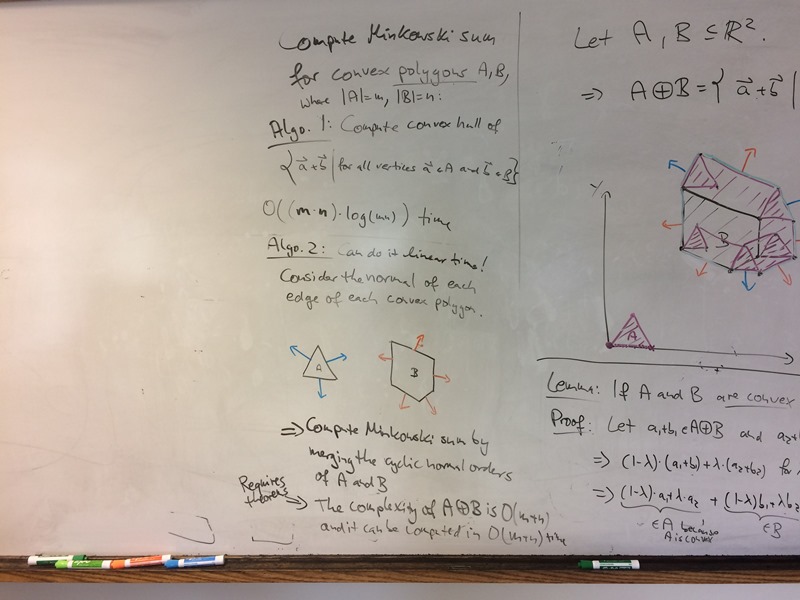 Compute Minkowski sum
for convex polygons A,B,
where |A|=m, |B|=n:
Algo. 1: Compute convex hull of
{ a⃗+b⃗ | for all vertices a⃗ ∈ A and b⃗ ∈ B}
O((m·n)·log(mn)) time
Algo. 2: Can do it linear time!
Consider the normal of each
edge of each convex polygon.
A
B
=> Compute Minkowski sum by
merging the cyclic normal orders
of A and B
Requires
theorem
=> The complexity of A⊕B is O(m+n)
and it can be computed in O(m+n) time
Let A, B ⊆ ℝ².
=> A⊕B = { a⃗+b⃗ |
Y
B
A
Lemma: If A and B are convex
Proof: Let a₁+b₁ ∈ A⊕B and a₂+
=> (1-λ)·(a₁+b₁)+λ·(a₂+b₂) for
=> (1-λ)·a₁+λ·a₂ + (1-λ)b₁+λb₂
∈A because ∈B
A is convex